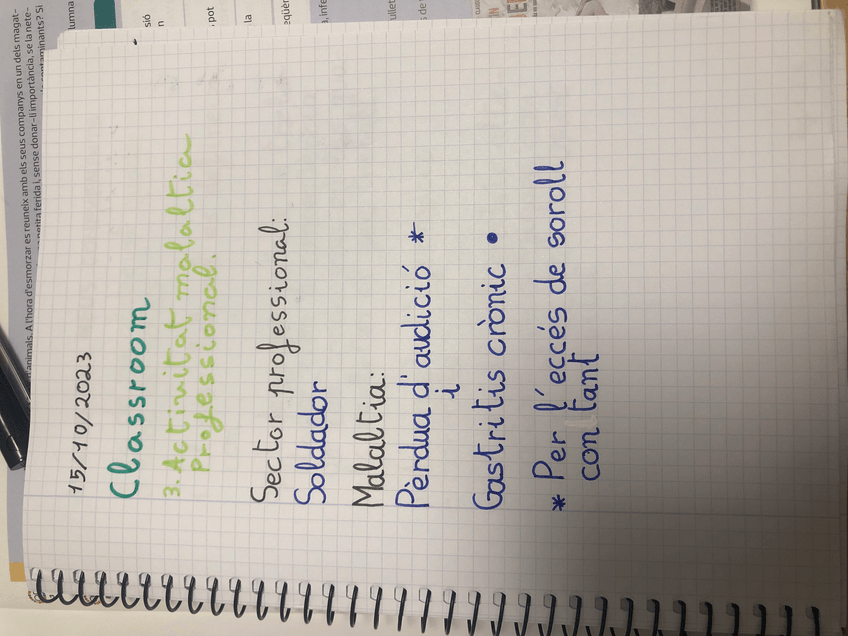 lumna
sió
n
, pot
la
eqüèn
animals. A l'hora d'esmorzar es reuneix amb els seus companys en un dels magat-
petita ferida i, sense donar-li importància, se la nete-
contaminants? Si
15/10/2023
Classroom
3. Activitat malaltia
Professional.
Sector professional:
Soldador
Malaltia:
Pèrdua d'audició *
i
Gastritis crònic •
* Per l'eccés de soroll
con tant